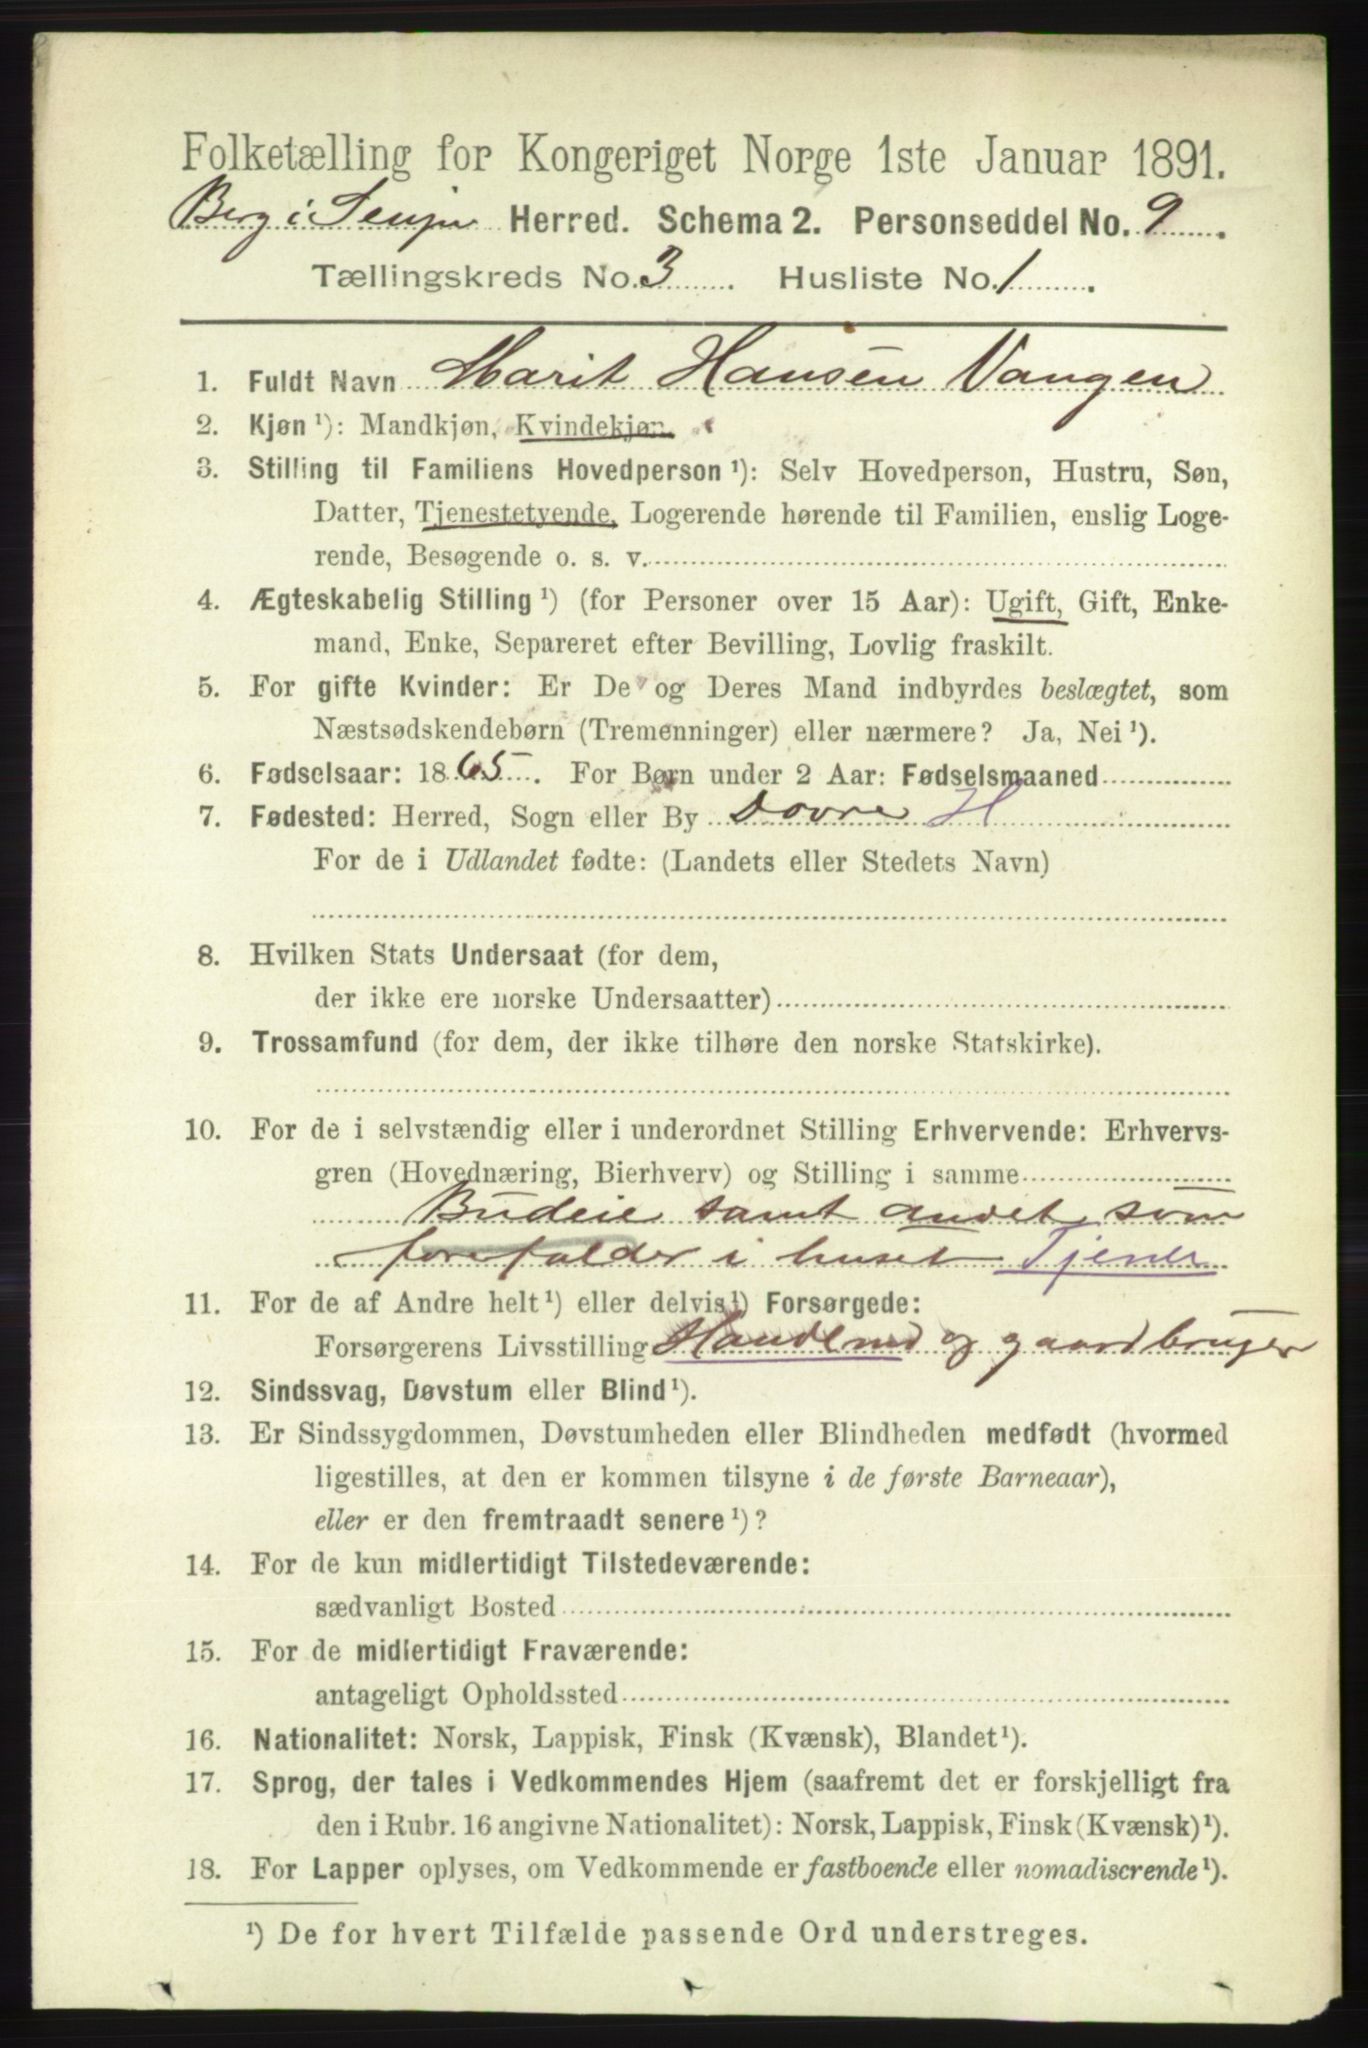 Folketælling for Kongeriget Norge 1ste Januar 1891.
Berg i Senjen Herred. Schema 2. Personseddel No. 9
Tællingskreds No. 3 Husliste No. 1
1. Fuldt Navn Marit Hansen Vangen
2. Kjøn ¹): Mandkjøn, Kvindekjøn.
3. Stilling til Familiens Hovedperson ¹): Selv Hovedperson, Hustru, Søn,
Datter, Tjenestetyende, Logerende hørende til Familien, enslig Loge-
rende, Besøgende o. s. v.
4. Ægteskabelig Stilling ¹) (for Personer over 15 Aar): Ugift, Gift, Enke-
mand, Enke, Separeret efter Bevilling, Lovlig fraskilt.
5. For gifte Kvinder: Er De og Deres Mand indbyrdes beslægtet, som
Næstsødskendebørn (Tremenninger) eller nærmere? Ja, Nei ¹).
6. Fødselsaar: 1865. For Børn under 2 Aar: Fødselsmaaned
7. Fødested: Herred, Sogn eller By Dovre H
For de i Udlandet fødte: (Landets eller Stedets Navn)
8. Hvilken Stats Undersaat (for dem,
der ikke ere norske Undersaatter)
9. Trossamfund (for dem, der ikke tilhøre den norske Statskirke).
10. For de i selvstændig eller i underordnet Stilling Erhvervende: Erhvervs-
gren (Hovednæring, Bierhverv) og Stilling i samme
Budeie samt andet som
forefalder i huset Tjener
11. For de af Andre helt ¹) eller delvis ¹) Forsørgede:
Forsørgerens Livsstilling Handelsmd og gaardbruger
12. Sindssvag, Døvstum eller Blind ¹).
13. Er Sindssygdommen, Døvstumheden eller Blindheden medfødt (hvormed
ligestilles, at den er kommen tilsyne i de første Barneaar),
eller er den fremtraadt senere ¹)?
14. For de kun midlertidigt Tilstedeværende:
sædvanligt Bosted
15. For de midlertidigt Fraværende:
antageligt Opholdssted
16. Nationalitet: Norsk, Lappisk, Finsk (Kvænsk), Blandet ¹).
17. Sprog, der tales i Vedkommendes Hjem (saafremt det er forskjelligt fra
den i Rubr. 16 angivne Nationalitet): Norsk, Lappisk, Finsk (Kvænsk) ¹).
18. For Lapper oplyses, om Vedkommende er fastboende eller nomadiserende ¹).
¹) De for hvert Tilfælde passende Ord understreges.